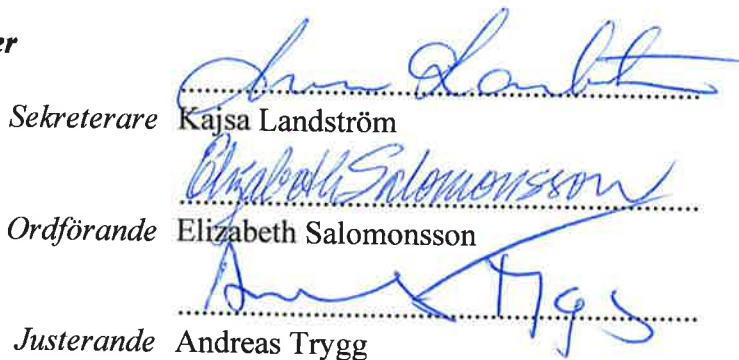 er
Sekreterare Kajsa Landström
Elizabeth Salomonsson
Ordförande Elizabeth Salomonsson
Justerande Andreas Trygg